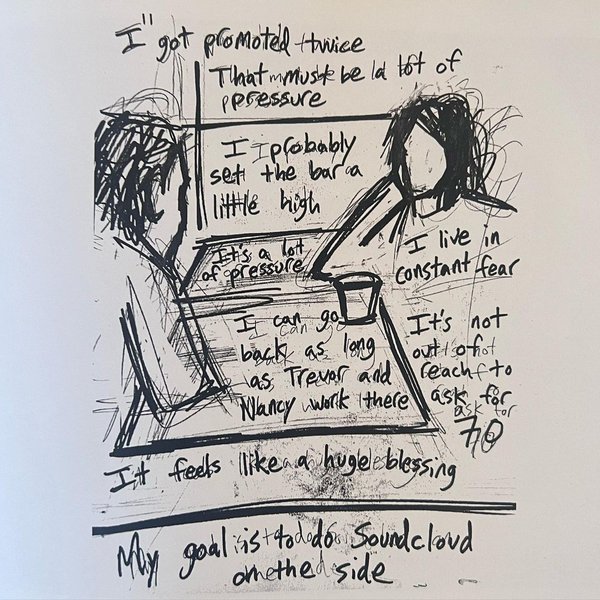 I" got promoted twice
That must be a lot of
pressure
I probably
set the bar a
little high
It's a lot
of pressure
I live in
constant fear
I can go
back as long
as Trevor and
Nancy work there
It's not
out of
reach to
ask for
70
It feels like a huge blessing
My goal is to do Soundcloud
on the side